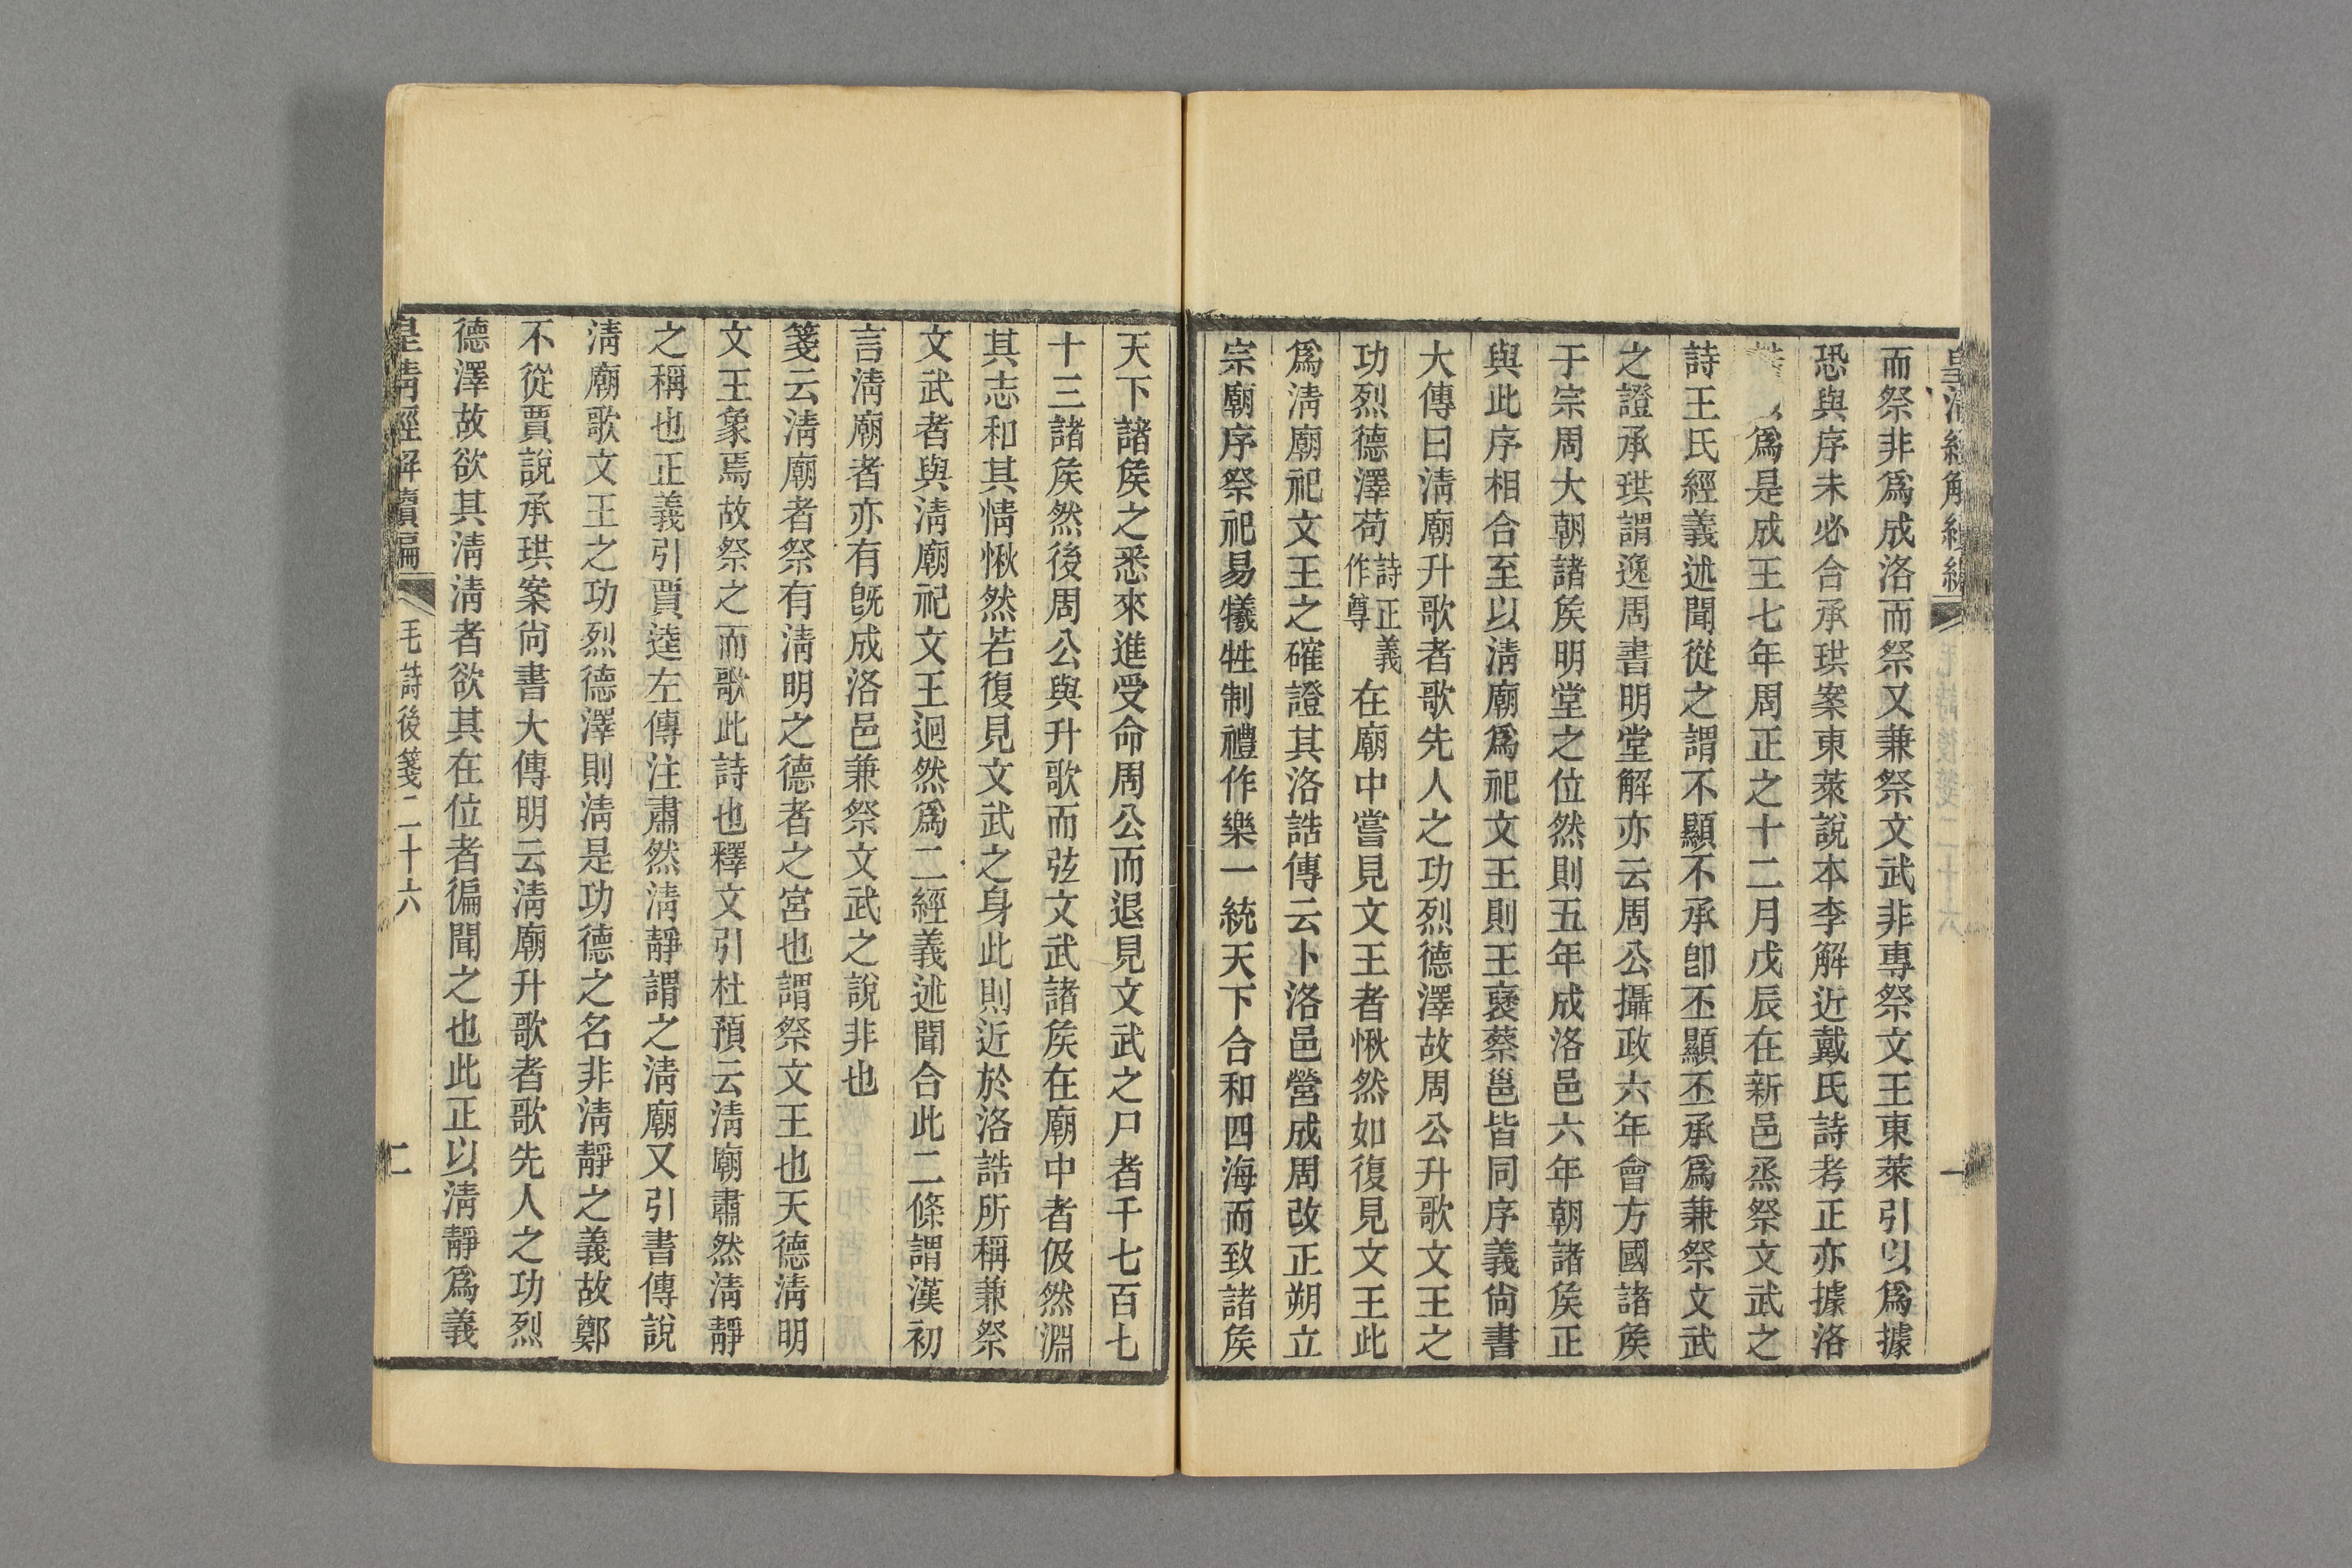 而祭非爲成洛而祭又兼祭文武非專祭文王東萊引㠯爲據
恐與序未必合承珙案東萊說本李解近戴氏詩考正亦據洛
爲是成王七年周正之十二月戊辰在新邑烝祭文武之
詩王氏經義述聞從之謂不顯不承卽丕顯丕承爲兼祭文武
之證承珙謂逸周書明堂解亦云周公攝政六年會方國諸矦
于宗周大朝諸矦明堂之位然則五年成洛邑六年朝諸矦正
與此序相合至以淸廟爲祀文王則王襃蔡邕皆同序義尙書
大傳曰淸廟升歌者歌先人之功烈德澤故周公升歌文王之
功烈德澤苟詩正義作尊在廟中嘗見文王者愀然如復見文王此
爲淸廟祀文王之確證其洛誥傳云卜洛邑營成周改正朔立
宗廟序祭祀易犧牲制禮作樂一統天下合和四海而致諸矦
天下諸矦之悉來進受命周公而退見文武之尸者千七百七
十三諸矦然後周公與升歌而弦文武諸矦在廟中者伋然淵
其志和其情愀然若復見文武之身此則近於洛誥所稱兼祭
文武者與淸廟祀文王迥然爲二經義述聞合此二條謂漢初
言淸廟者亦有旣成洛邑兼祭文武之說非也
箋云淸廟者祭有淸明之德者之宮也謂祭文王也天德淸明
文王象焉故祭之而歌此詩也釋文引杜預云淸廟肅然淸靜
之稱也正義引賈逵左傳注肅然淸靜謂之淸廟又引書傳說
淸廟歌文王之功烈德澤則淸是功德之名非淸靜之義故鄭
不從賈說承珙案尙書大傳明云淸廟升歌者歌先人之功烈
德澤故欲其淸淸者欲其在位者徧聞之也此正以淸靜爲義
皇淸經解續編 毛詩後箋二十六 二